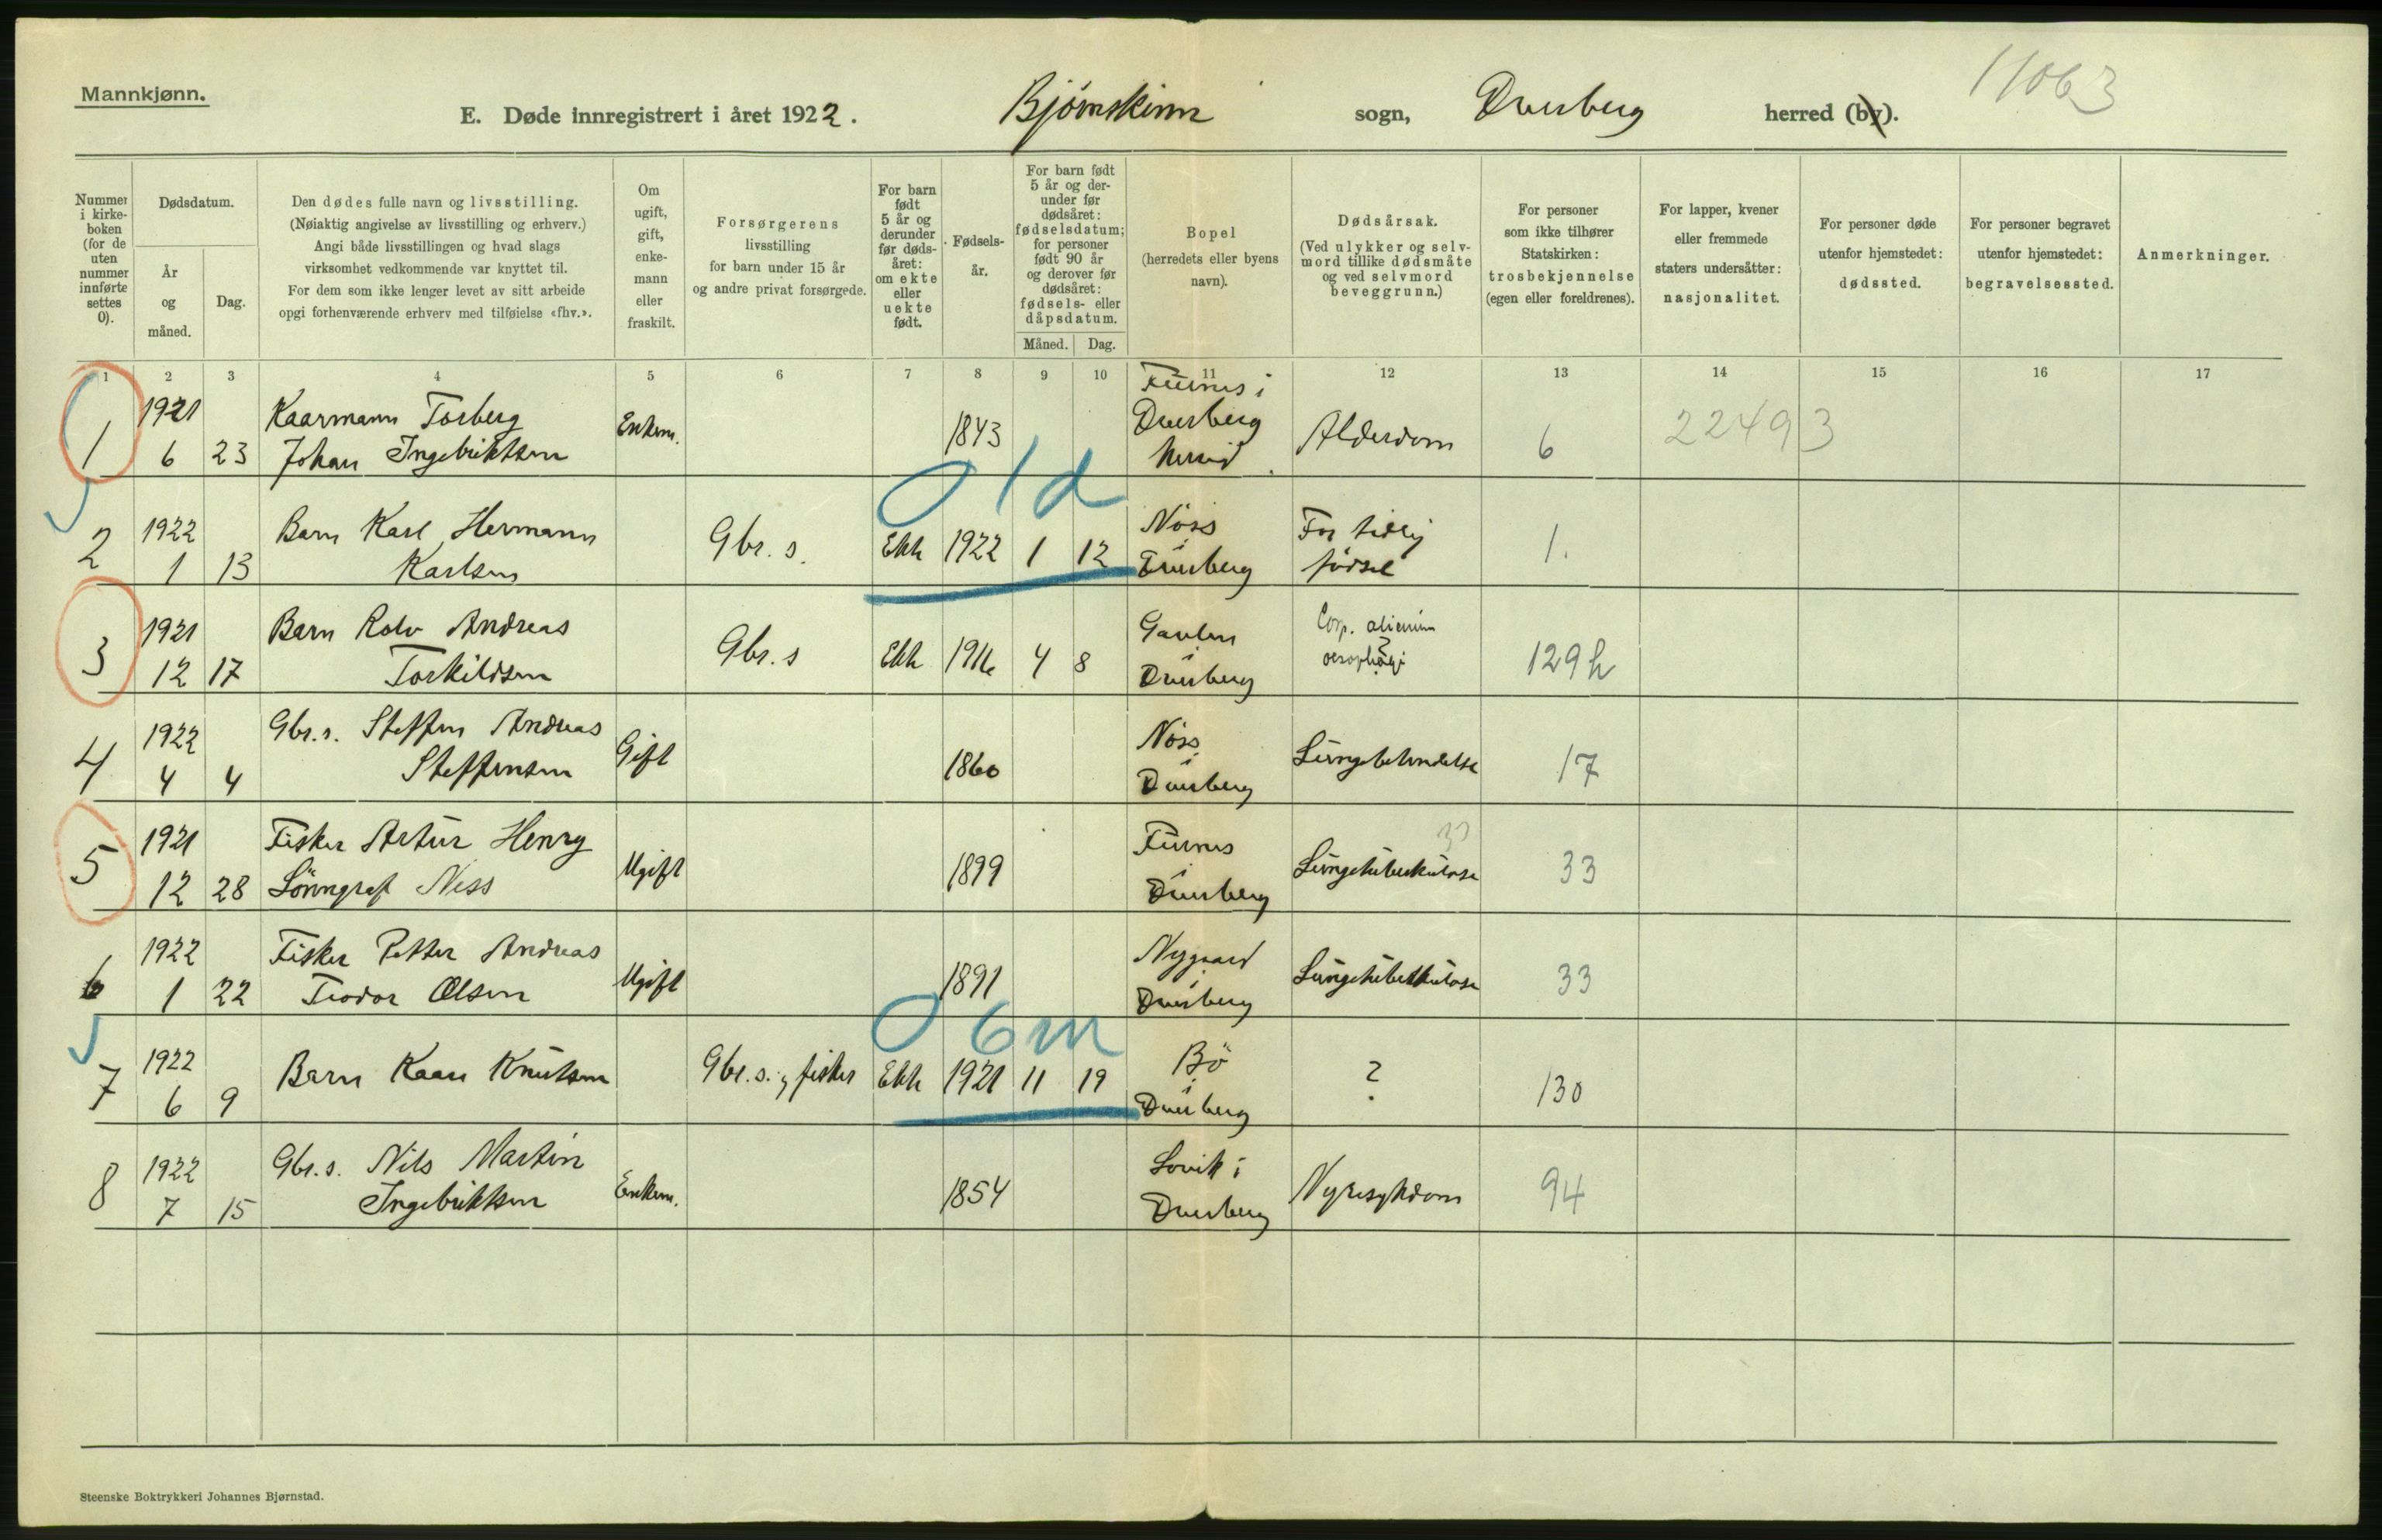 Mannkjønn.
11063
E. Døde innregistrert i året 1922. Bjørnskinn sogn, Dverberg herred (by).
Nummer i kirkeboken (for de uten nummer innførte settes 0).
Dødsdatum.
År og måned.
Dag.
Den dødes fulle navn og livsstilling.
(Nøiaktig angivelse av livsstilling og erhverv.)
Angi både livsstillingen og hvad slags
virksomhet vedkommende var knyttet til.
For dem som ikke lenger levet av sitt arbeide
opgi forhenværende erhverv med tilføielse «fhv.».
Om ugift, gift, enkemann eller fraskilt.
Forsørgerens
livsstilling
for barn under 15 år
og andre privat forsørgede.
For barn født 5 år og derunder før dødsåret: om ekte eller uekte født.
Fødselsår.
For barn født 5 år og derunder før dødsåret: fødselsdatum; for personer født 90 år og derover før dødsåret: fødsels- eller dåpsdatum.
Måned. Dag.
Bopel
(herredets eller byens
navn).
Dødsårsak.
(Ved ulykker og selvmord tillike dødsmåte og ved selvmord beveggrunn.)
For personer
som ikke tilhører
Statskirken:
trosbekjennelse
(egen eller foreldrenes).
For lapper, kvener
eller fremmede
staters undersåtter:
nasjonalitet.
For personer døde
utenfor hjemstedet:
dødssted.
For personer begravet
utenfor hjemstedet:
begravelsessted.
Anmerkninger.
1 2 3 4 5 6 7 8 9 10 11 12 13 14 15 16 17
1 1921 6 23 Kaarmann Torberg
Johan Ingebriktsen Enkem. 1843 Furnes i
Dverberg
herred Alderdom 6 22493
0 1 d
2 1922 1 13 Barn Karl Hermann
Karlsen Gbr. s. Ekte 1922 1 12 Nöss
i Dverberg For tidlig
fødsel 1.
3 1921 12 17 Barn Rolv Andreas
Torkildsen Gbr. s Ekte 1916 4 8
i Dverberg Corp. alienum
oesophagi 129 h
4 1922 4 4 Gbr. s. Steffen Andreas
Steffensen Gift 1860 Nöss
i Dverberg Lungebetendelse 17
5 1921 12 28 Fisker Artur Henry
Lönngraf Ness Ugift 1899 Furnes
i Dverberg Lungetuberkulose 33 33
6 1922 1 22 Fisker Petter Andreas
Teodor Olsen Ugift 1891 Nygaard
i Dverberg Lungetuberkulose 33
0 6 m
7 1922 6 9 Barn Kaare Knutsen Gbr. s. og fisker Ekte 1921 11 19 Bö
i Dverberg ? 130
8 1922 7 15 Gbr. s. Nils Martin
Ingebriktsen Enkem. 1854 Lovik i
Dverberg Nyresykdom 94
Steenske Boktrykkeri Johannes Bjørnstad.